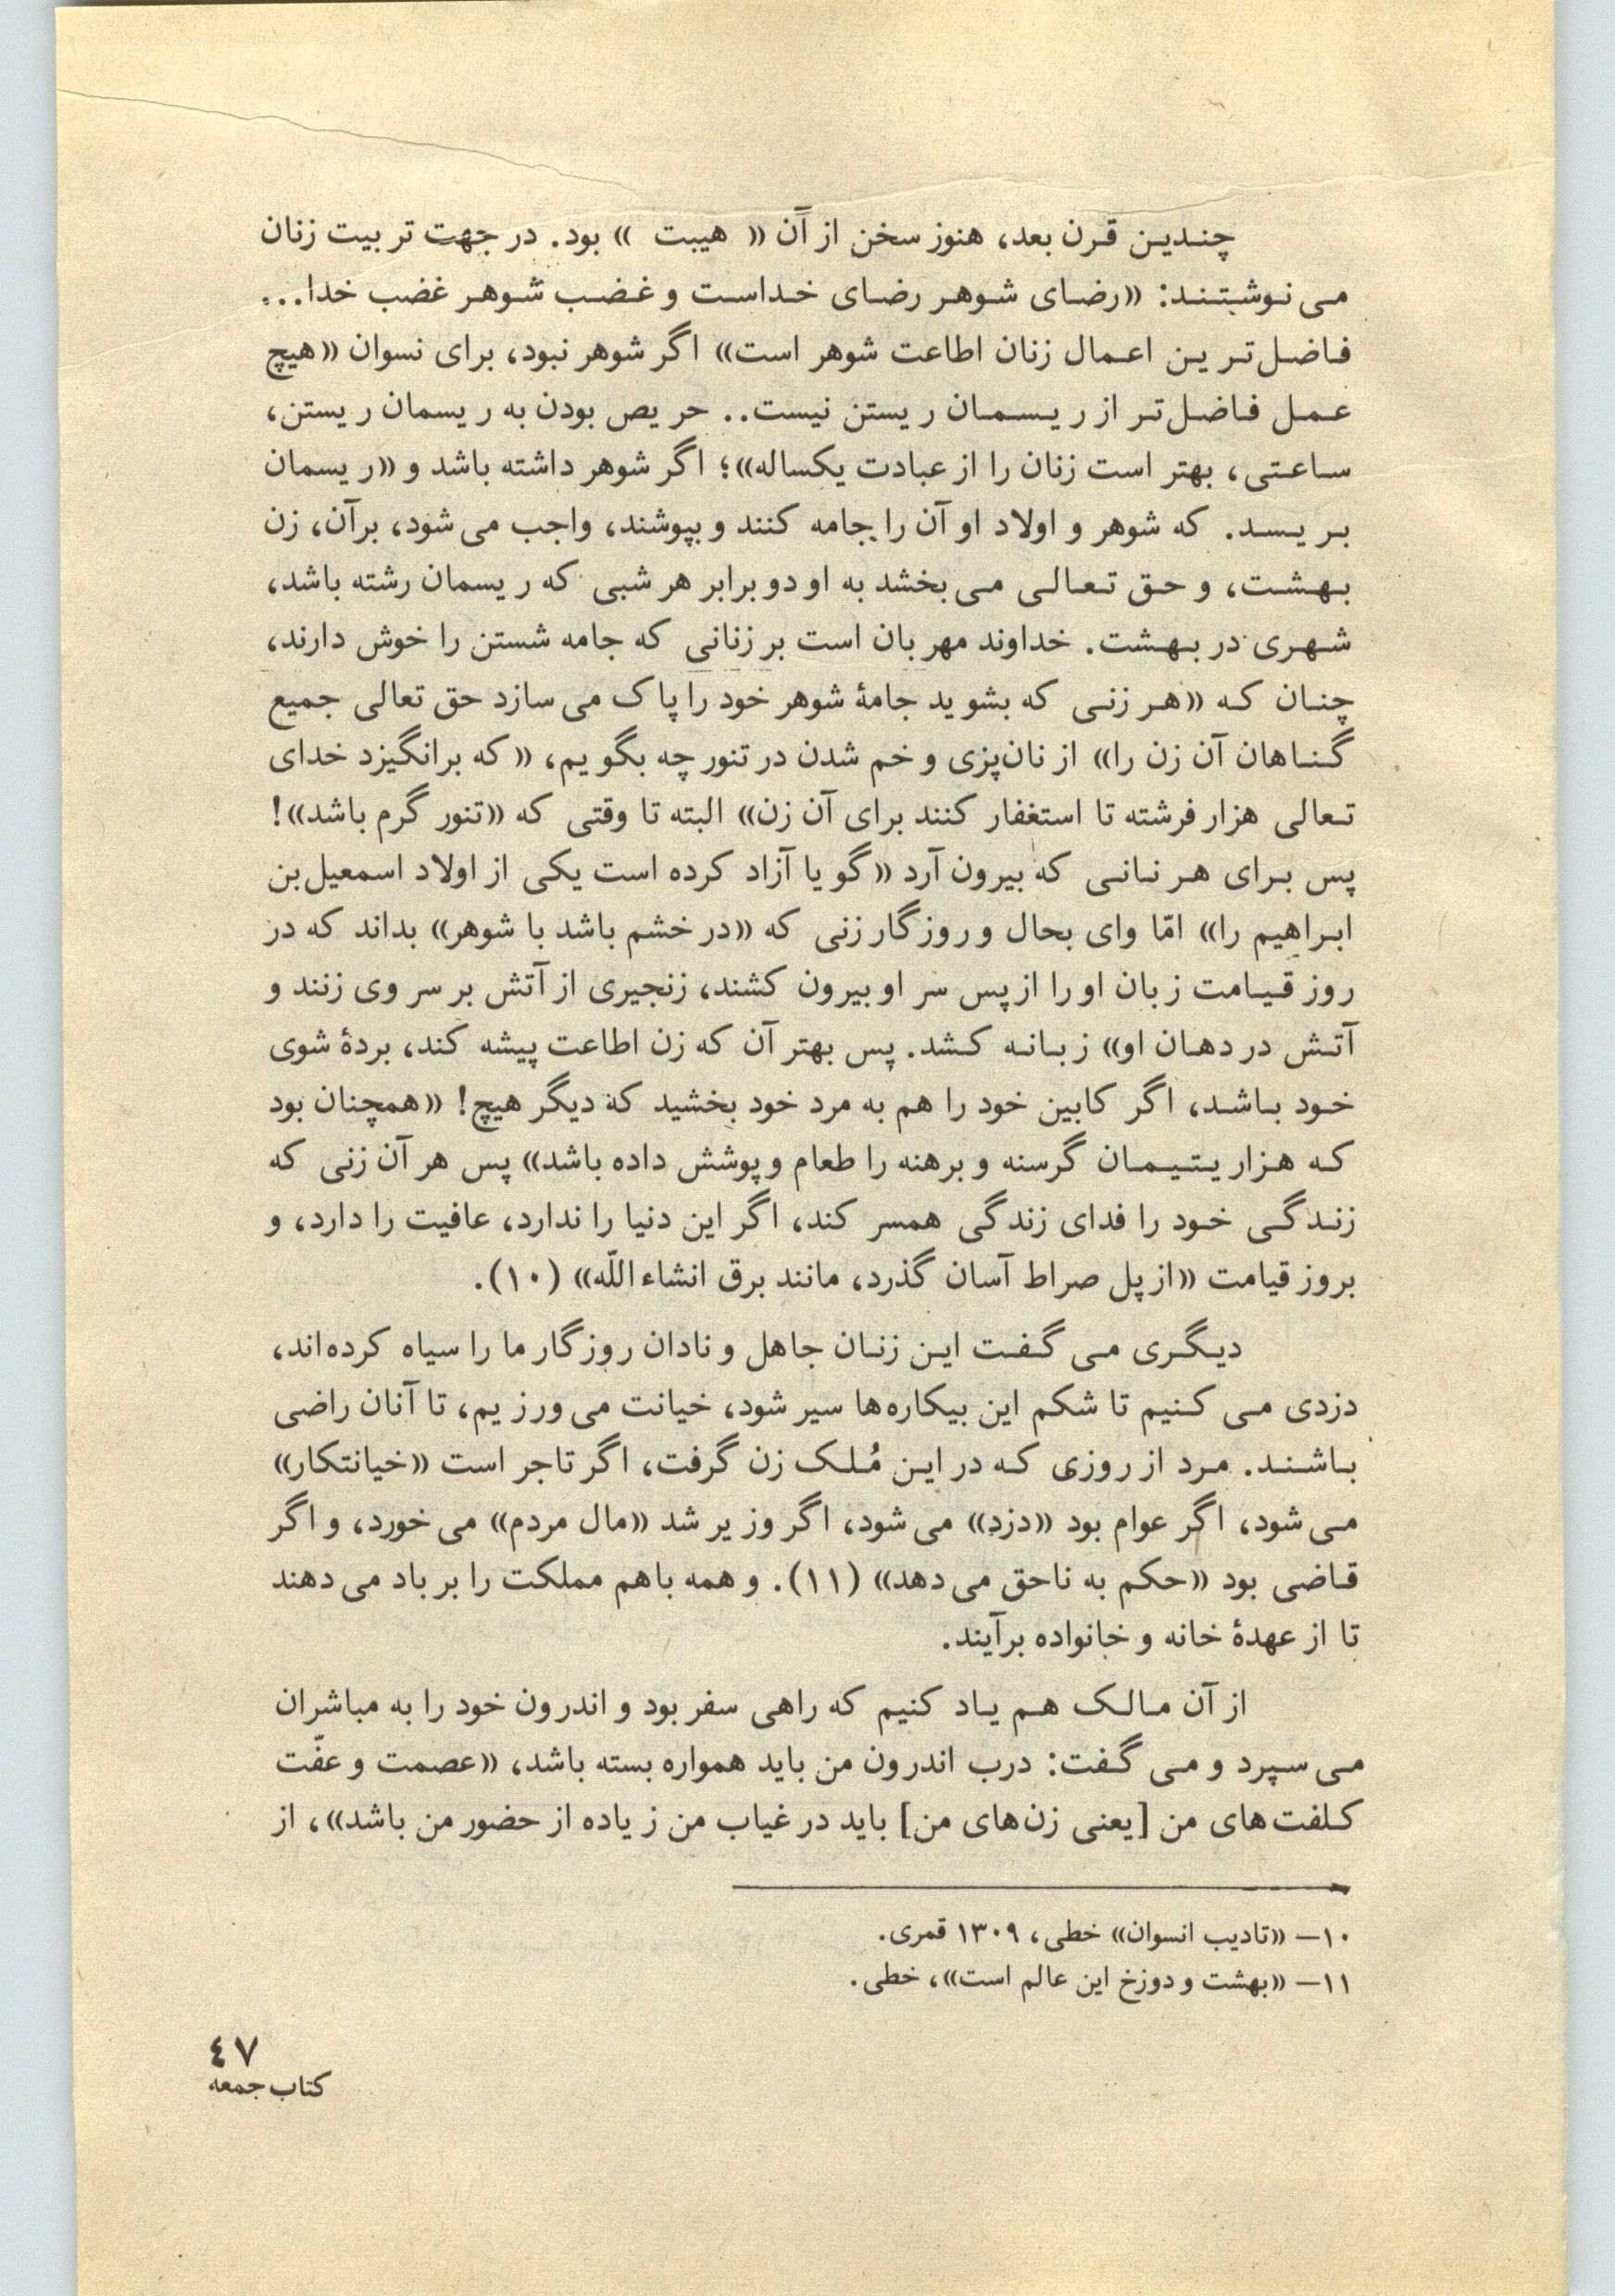 چندین قرن بعد، هنوز سخن از آن « هیبت » بود. در جهت تربیت زنان
می‌نوشتند: «رضای شوهر رضای خداست و غضب شوهر غضب خدا...
فاضل‌ترین اعمال زنان اطاعت شوهر است» اگر شوهر نبود، برای نسوان «هیچ
عمل فاضل‌تر از ریسمان ریستن نیست.. حریص بودن به ریسمان ریستن،
ساعتی، بهتر است زنان را از عبادت یکساله»؛ اگر شوهر داشته باشد و «ریسمان
بریسد. که شوهر و اولاد او آن را جامه کنند و بپوشند، واجب می‌شود، برآن، زن
بهشت، و حق تعالی می‌بخشد به او دو برابر هر شبی که ریسمان رشته باشد،
شهری در بهشت. خداوند مهربان است بر زنانی که جامه شستن را خوش دارند،
چنان که «هر زنی که بشوید جامهٔ شوهر خود را پاک می‌سازد حق تعالی جمیع
گناهان آن زن را» از نان‌پزی و خم شدن در تنور چه بگویم، «که برانگیزد خدای
تعالی هزار فرشته تا استغفار کنند برای آن زن» البته تا وقتی که «تنور گرم باشد»!
پس برای هر نانی که بیرون آرد «گویا آزاد کرده است یکی از اولاد اسمعیل‌بن
ابراهیم را» امّا وای بحال و روزگار زنی که «در خشم باشد با شوهر» بداند که در
روز قیامت زبان او را از پس سر او بیرون کشند، زنجیری از آتش بر سر وی زنند و
آتش در دهان او» زبانه کشد. پس بهتر آن که زن اطاعت پیشه کند، بردهٔ شوی
خود باشد، اگر کابین خود را هم به مرد خود بخشید که دیگر هیچ! «همچنان بود
که هزار یتیمان گرسنه و برهنه را طعام و پوشش داده باشد» پس هر آن زنی که
زندگی خود را فدای زندگی همسر کند، اگر این دنیا را ندارد، عافیت را دارد، و
بروز قیامت «از پل صراط آسان گذرد، مانند برق انشاءاللّه» (۱۰).
دیگری می گفت این زنان جاهل و نادان روزگار ما را سیاه کرده‌اند،
دزدی می کنیم تا شکم این بیکاره‌ها سیر شود، خیانت می‌ورزیم، تا آنان راضی
باشند. مرد از روزی که در این مُلک زن گرفت، اگر تاجر است «خیانتکار»
می‌شود، اگر عوام بود «دزد» می‌شود، اگر وزیر شد «مال مردم» می‌خورد، و اگر
قاضی بود «حکم به ناحق می‌دهد» (۱۱). و همه باهم مملکت را بر باد می‌دهند
تا از عهدهٔ خانه و خانواده برآیند.
از آن مالک هم یاد کنیم که راهی سفر بود و اندرون خود را به مباشران
می‌سپرد و می گفت: درب اندرون من باید همواره بسته باشد، «عصمت و عفّت
کلفت‌های من [یعنی زن‌های من] باید در غیاب من زیاده از حضور من باشد»، از
۱۰— «تادیب انسوان» خطی، ۱۳۰۹ قمری.
۱۱— «بهشت و دوزخ این عالم است»، خطی.
٤٧
کتاب جمعه